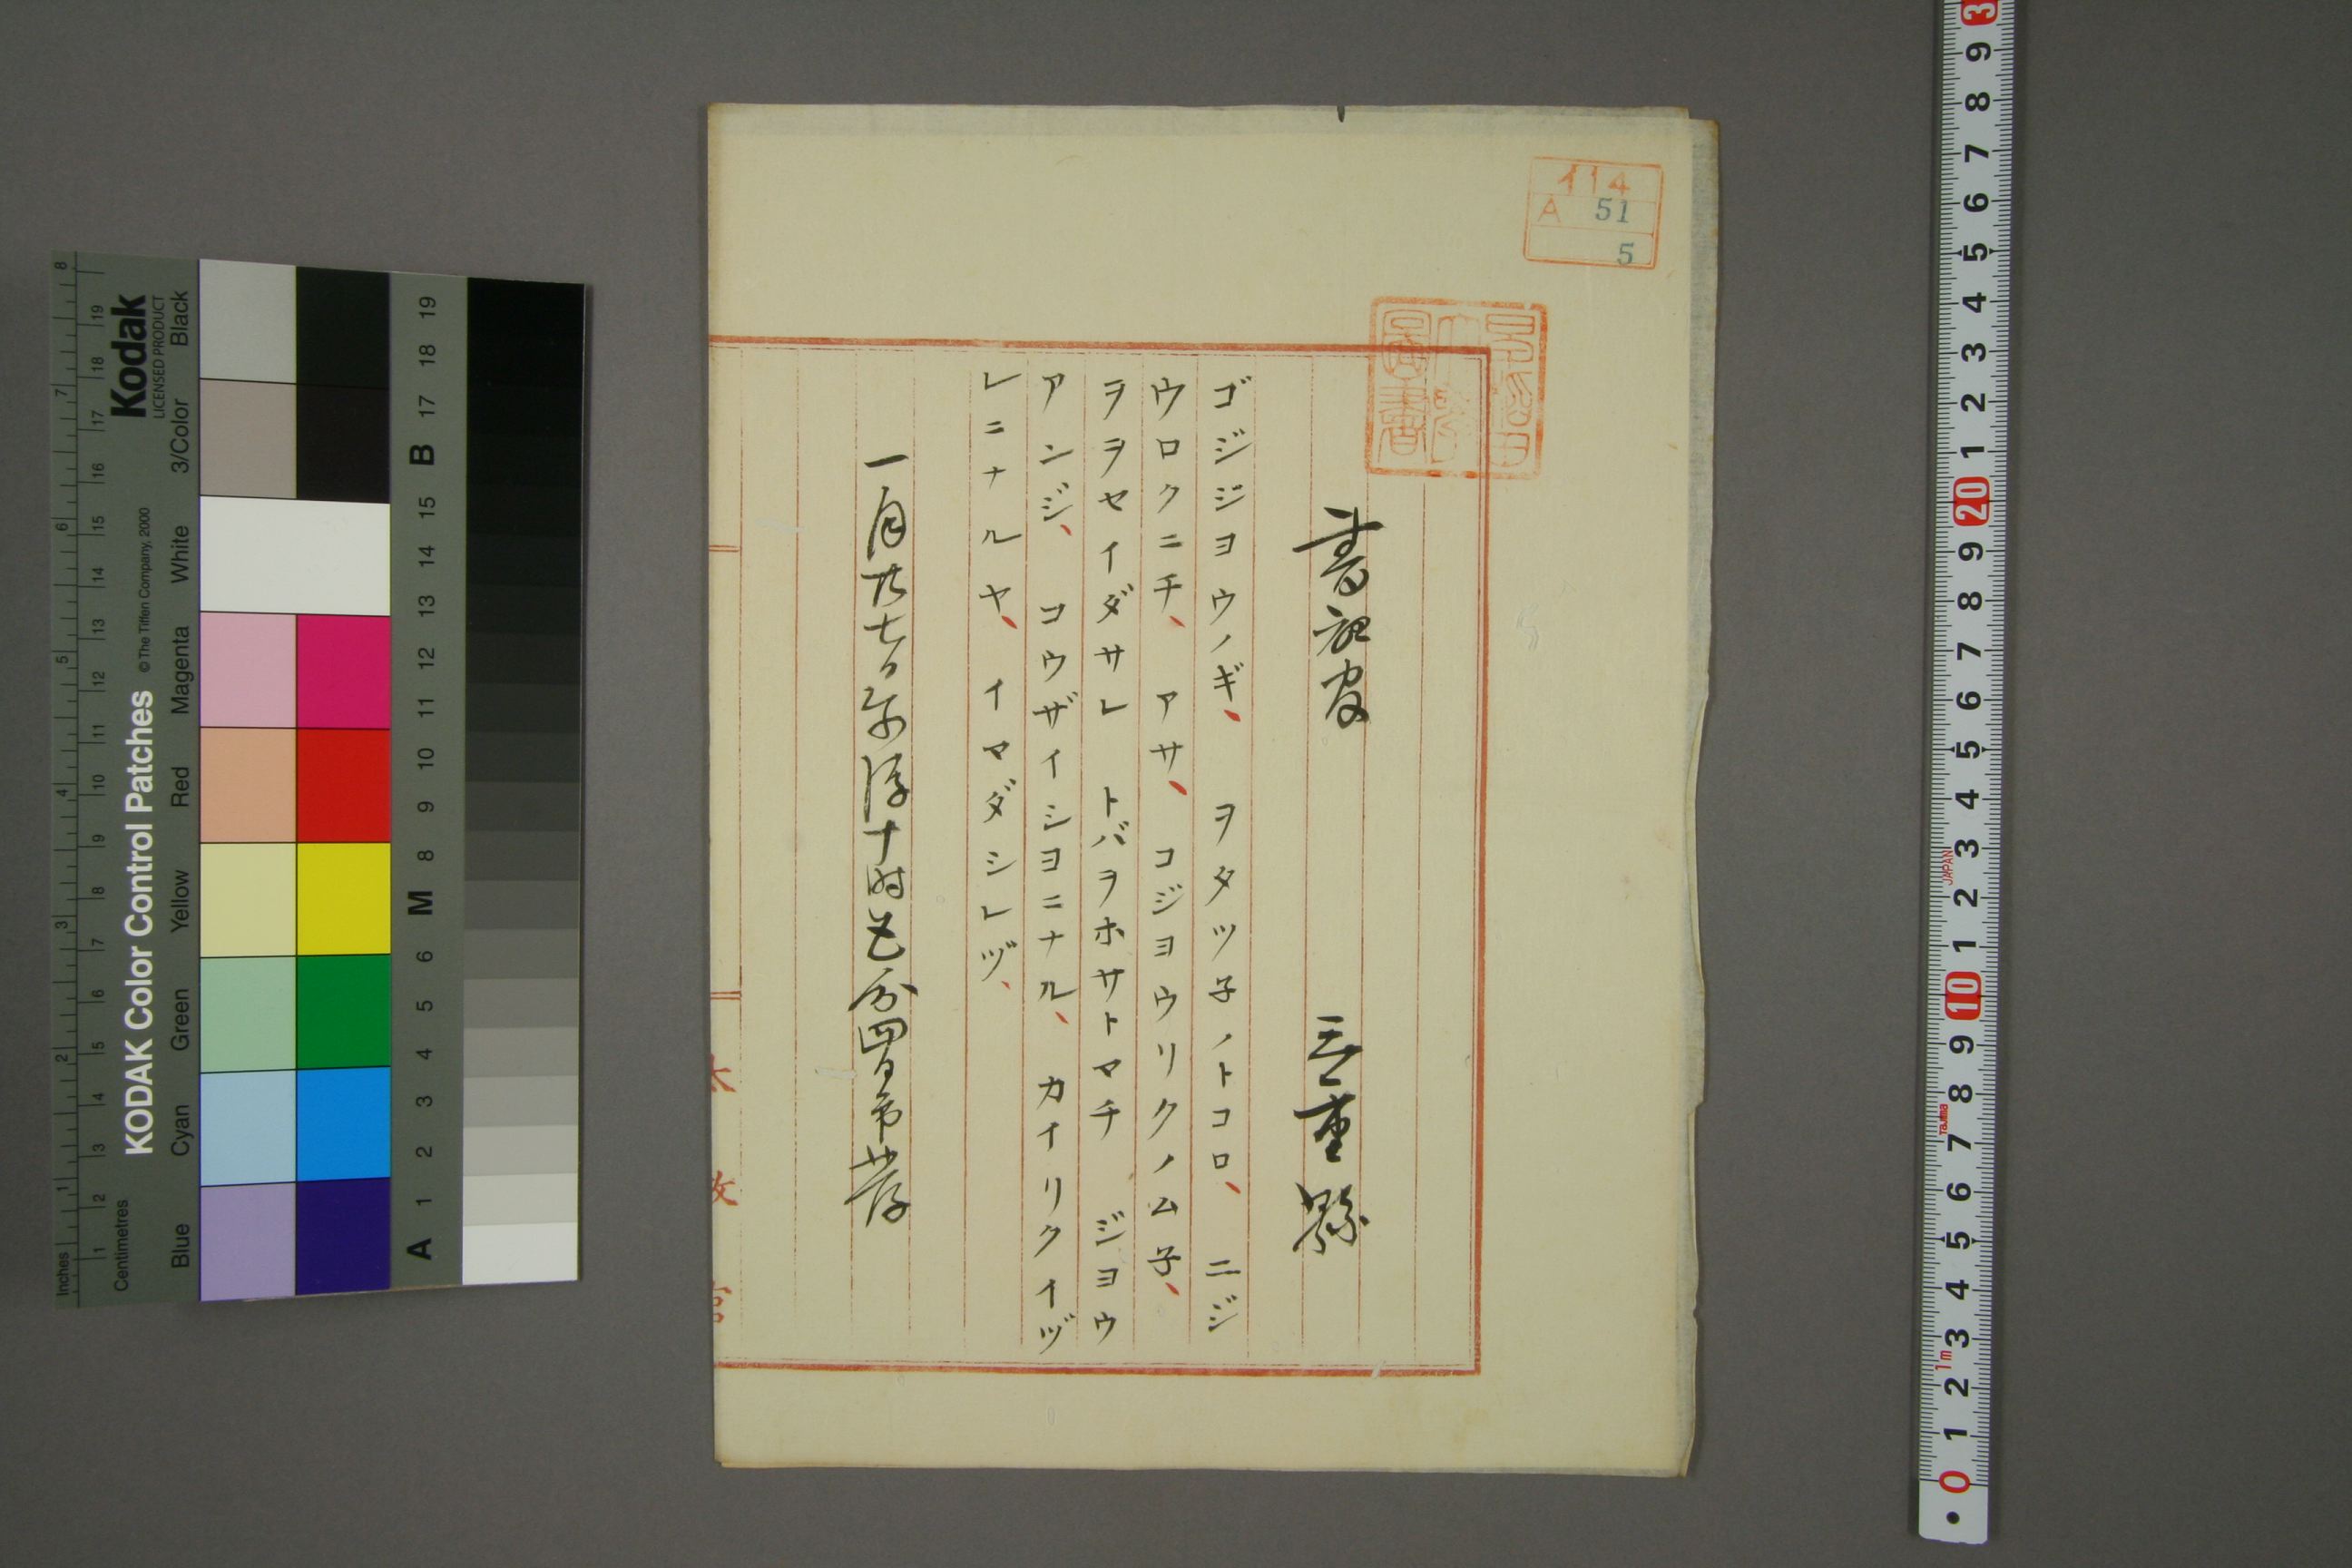 114
A 51
5
早稲田大學圖書
書記官 三重縣
ゴジジヨウノギ、ヲタツ子ノトコロ、ニジ
ウロクニチ、アサ、コジヨウリクノム子、
ヲヲセイダサレ トバヲホサトマチ ジヨウ
アンジ、コウザイシヨニナル、カイリクイヅ
レニナルヤ、イマダシレヅ、
一月廿七日午后十時
大政官
KODAK Color Control Patches
© The Tiffen Company, 2000
Kodak
LICENSED PRODUCT
Inches
Centimetres
Blue Cyan Green Yellow Red Magenta White 3/Color Black
A 1 2 3 4 5 6 M 8 9 10 11 12 13 14 15 B 17 18 19
JAPAN
Tajima
1m